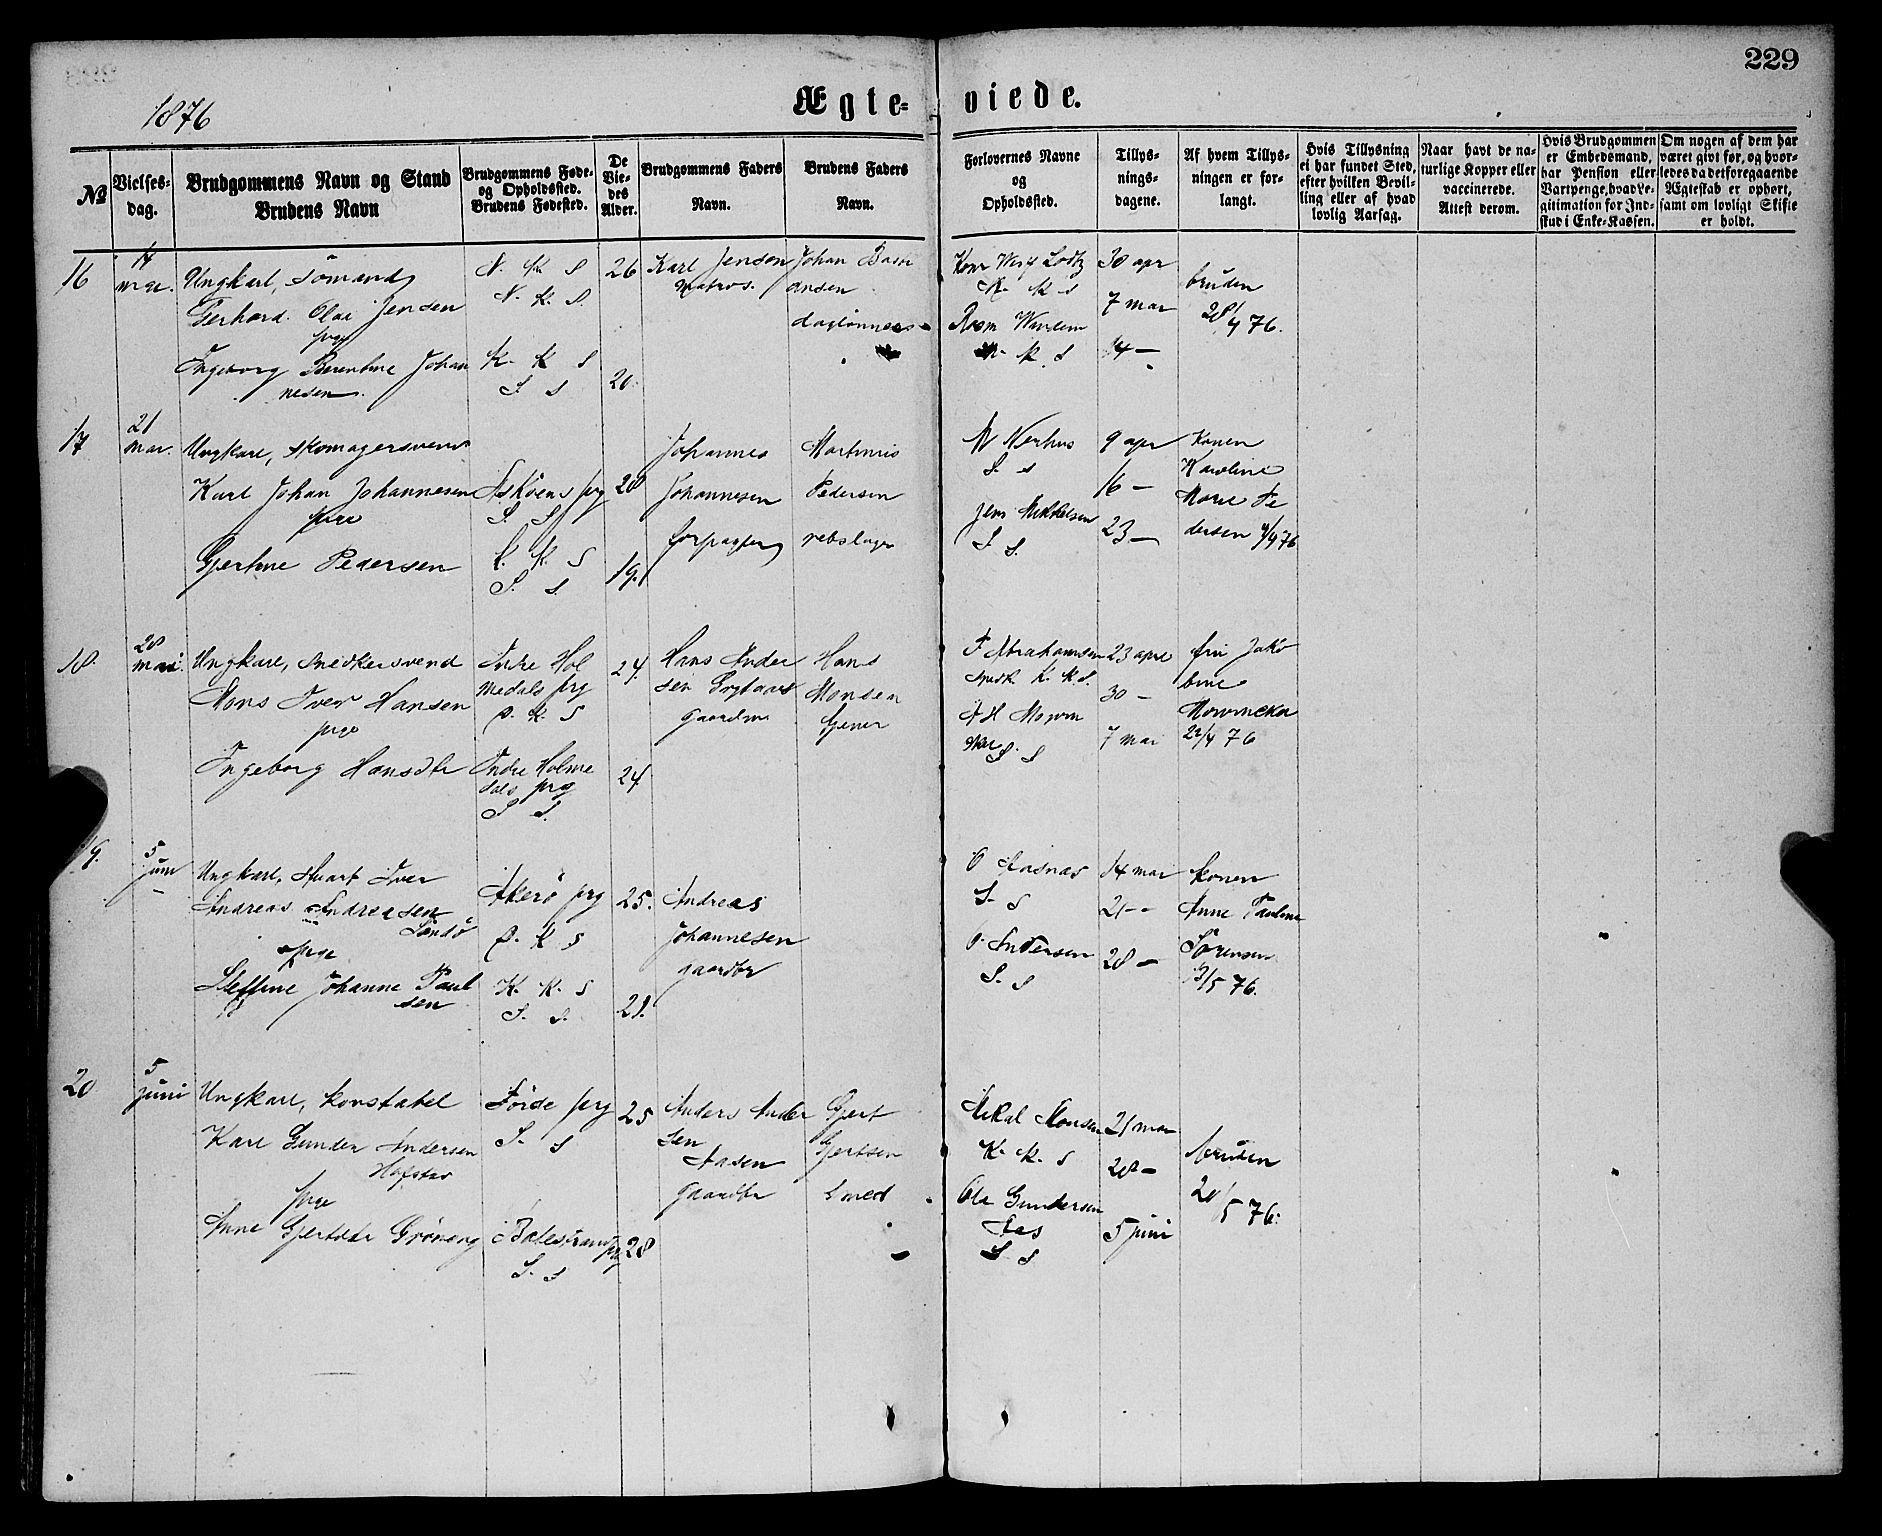 229
1876
Ægte-viede.
№
Vielses-
dag.
Brudgommens Navn og Stand
Brudens Navn
Brudgommens Føde-
og Opholdssted.
Brudens Fødested.
De
Vie-
des
Alder.
Brudgommens Faders
Navn.
Brudens Faders
Navn.
Forlovernes Navne
og
Opholdssted.
Tillys-
nings-
dagene.
Af hvem Tillys-
ningen er for-
langt.
Hvis Tillysning
ei har fundet Sted,
efter hvilken Bevil-
ling eller af hvad
lovlig Aarsag.
Naar havt de na-
turlige Kopper eller
vaccinerede.
Attest derom.
Hvis Brudgommen
er Embedsmand,
har Pension eller
Vartpenge, hvad Le-
gitimation for Ind-
skud i Enke-Kassen.
Om nogen af dem har
været givt før, og hvor-
ledes da det foregaaende
Ægteskab er ophørt,
samt om lovligt Skifte
er holdt.
16
14
Ungkarl, Sömand
Gerhard Olai Jensen
Ingeborg Berentine Johan
nesen
N. K. S
N. K. S.
K. K. S
S. S
26
20
Karl Jensen
Matros.
Johan
ansen
30 apr
7 mai
14 —
bruden
28/4 76.
17
21
mai.
Ungkarl, Skomagersvend
Karl Johan Johannesen
pige
Gjertine Pedersen
Askøens prg
S. S
K. K. S
S. S.
28
19.
Johannes
Johannesen
forpagter
Martinus
Pedersen
rebslager
M Nerhus
S. S
Jens Mikkelsen
S. S.
9 apr
16 —
23 —
Konen
Karoline
Marie Pe
dersen 4/4 76
18.
28
mai
Ungkarl, Snedkersvend
Mons Iver Hansen
pige
Ingeborg Hansdtr
Indre Hol
medals prg
S
Indre Holme
dals prg
S. S.
24.
24.
Hans Ander
sen
gaardm
Hans
Monsen
F Abrahamsen
K. K. S.
S. S
23 apr
30 —
7 mai
fru Jako
bine
22/4 76
19.
5
juni
Ungkarl, Iver
Andreas Andreasen
Sandö
pige
Steffine Johanne Paul
sen
Akerö prg
K. S
K. K. S
S. S.
25.
21.
Andreas
Johannesen
gaardbr
O
S. S
O. Andersen
S. S
14 mai
21 —
28 —
Konen
Anne Pauline
Sörensen
13/5 76.
20
5
juni
Ungkarl, Konstabel
Karl Gunder Andersen
Hafstad
pige
Anne Gjertsdtr
Förde prg
S. S
Balestrand prg
S. S
25
28
Anders Ander
sen
Aasen
gaardbr
Gjert
Gjertsen
Smed
Mikal Monsen
K. K. S
Ola Gundersen
Aas
S. S
21 mai
28 —
5 juni
bruden
20/5 76.